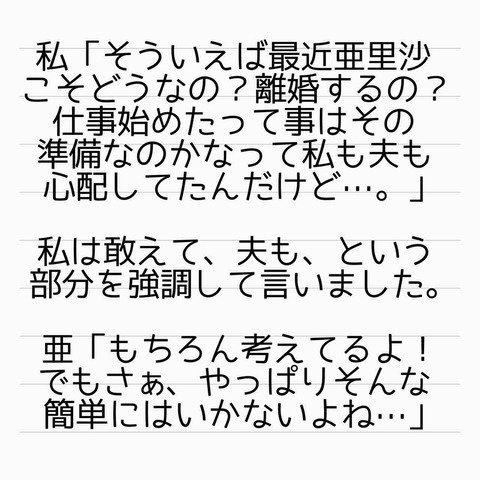 私「そういえば最近亜里沙
こそどうなの？離婚するの？
仕事始めたって事はその
準備なのかなって私も夫も
心配してたんだけど…。」
私は敢えて、夫も、という
部分を強調して言いました。
亜「もちろん考えてるよ！
でもさぁ、やっぱりそんな
簡単にはいかないよね…」